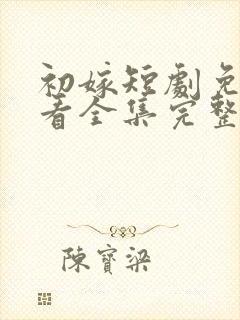 初嫁短劇免
看全集完整
陳寶梁